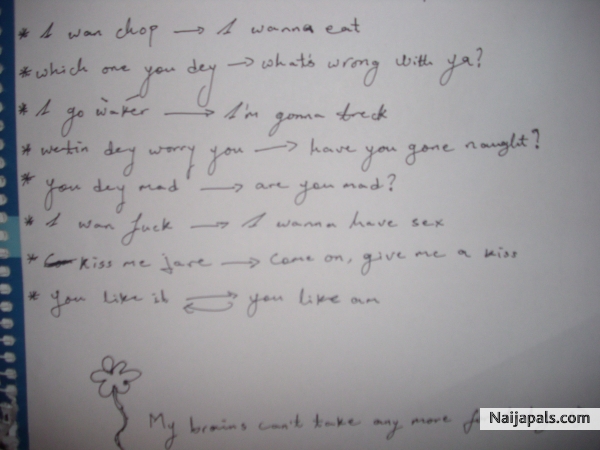 * I wan chop → I wanna eat
* which one you dey → what's wrong with ya?
* I go waker → I'm gonna treck
* wetin dey worry you → have you gone naught?
* you dey mad → are you mad?
* I wan fuck → I wanna have sex
* kiss me jare → Come on, give me a kiss
* you like it ⇄ you like am
My brains can't take any more
Naijapals.com